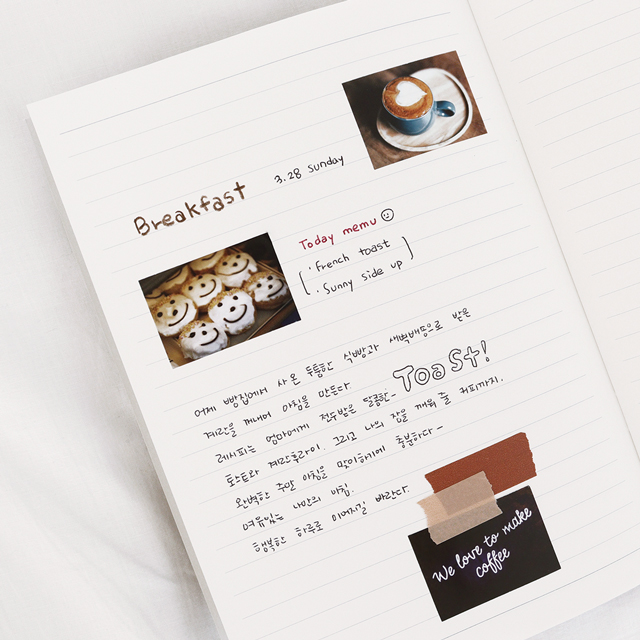 3.28 Sunday
Breakfast
Today memu
· French toast
· Sunny side up
어제 빵집에서 사온 통통한 식빵과 새벽배송으로 받은
계란을 꺼내며 아침을 만든다.
레시피는 엄마에게 전수받은 달콤한- Toast!
토스트와 계란후라이. 그리고 나의 잠을 깨워 줄 커피까지.
완벽한 주말 아침을 맞이하기에 충분하다-
여유있는 나만의 아침.
행복한 하루로 이어지길 바란다.
We love to make
coffee